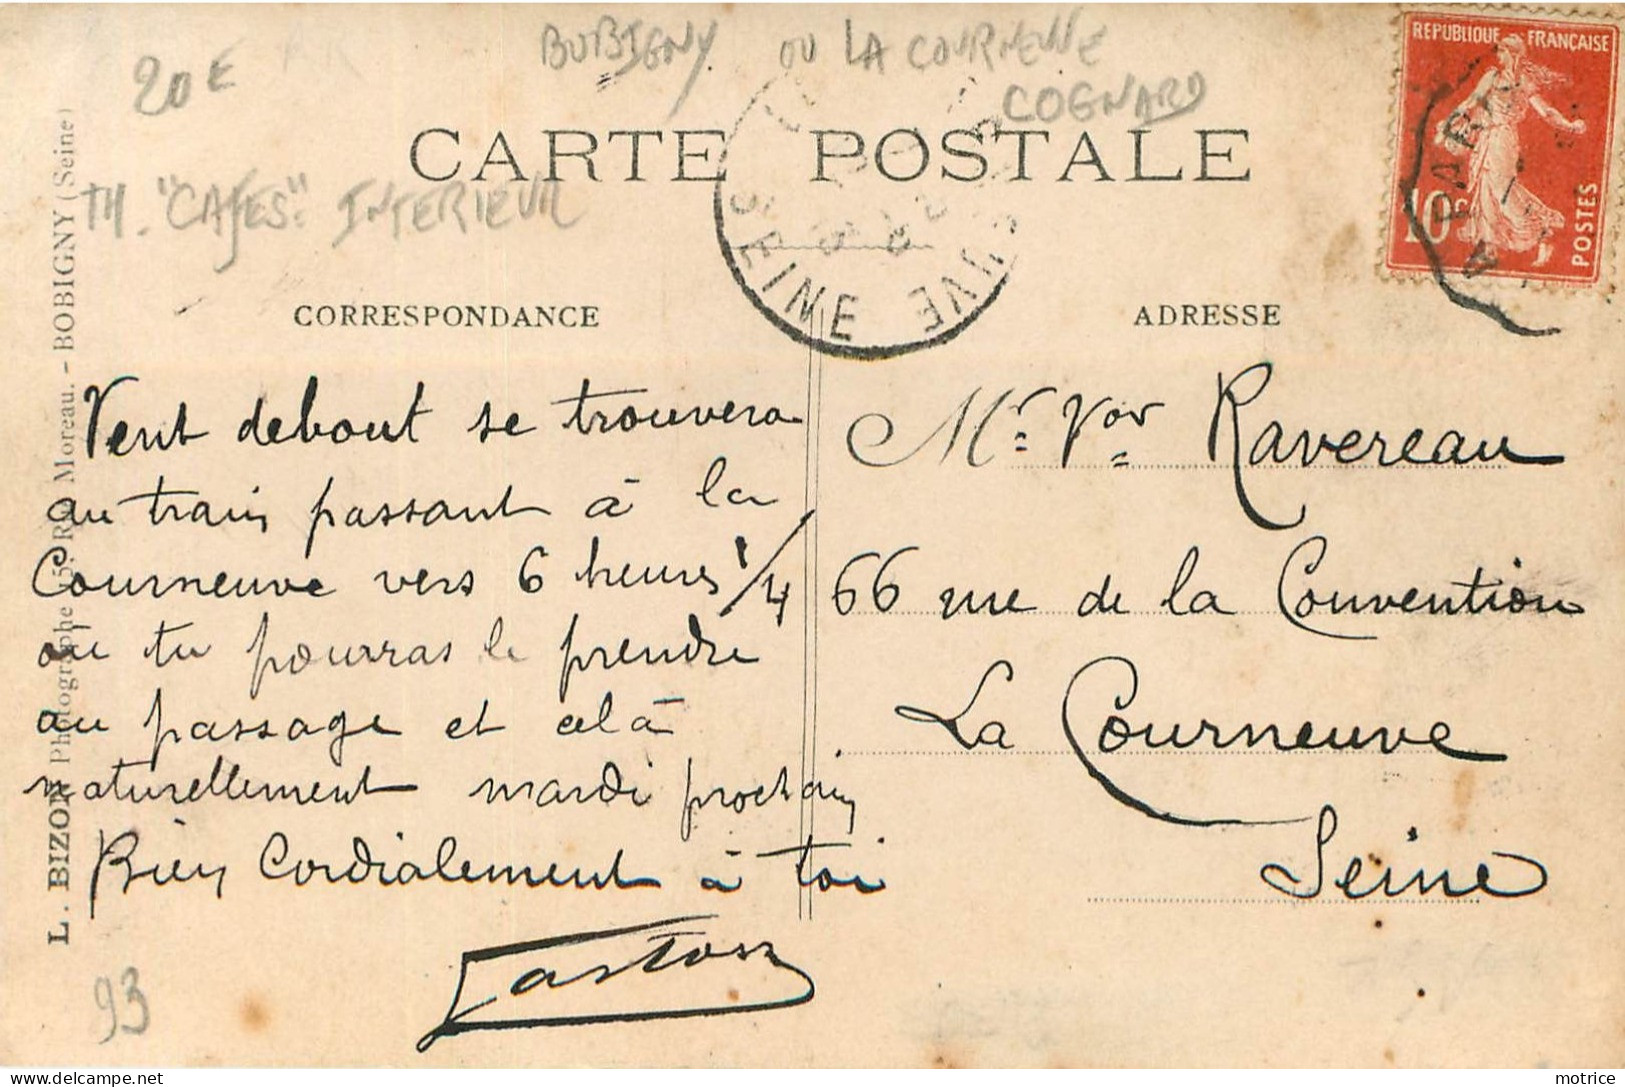 20€
BOBIGNY OU LA COURNEUVE
COGNARD
CARTE POSTALE
TH. "CAFES" INTERIEUR
REPUBLIQUE FRANÇAISE
10c
POSTES
A PARIS
SEINE
CORRESPONDANCE
Vent debout se trouvera
au train passant à la
Courneuve vers 6 heures 1/4
où tu pourras le prendre
au passage et celà
naturellement mardi prochain
Bien Cordialement à toi
Gaston
ADRESSE
Mr Vor Ravereau
66 rue de la Convention
La Courneuve
Seine
L. BIZON Photographe 15. R. Moreau. - BOBIGNY (Seine)
93
motrice